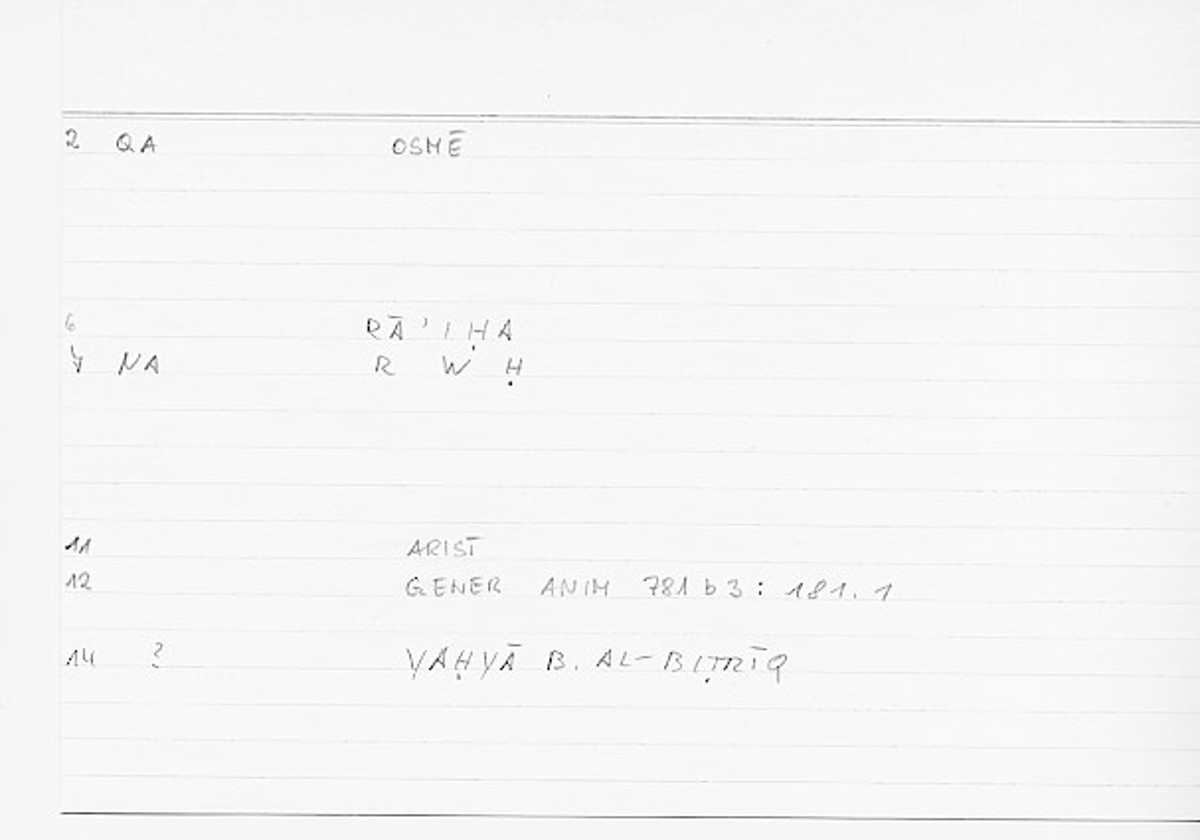 2 QA OSMĒ
6 RĀ'IḤA
7 NA R W Ḥ
11 ARIST
12 GENER ANIM 781 b 3 : 181. 1
14 ? YAḤYĀ B. AL-BIṬRĪQ